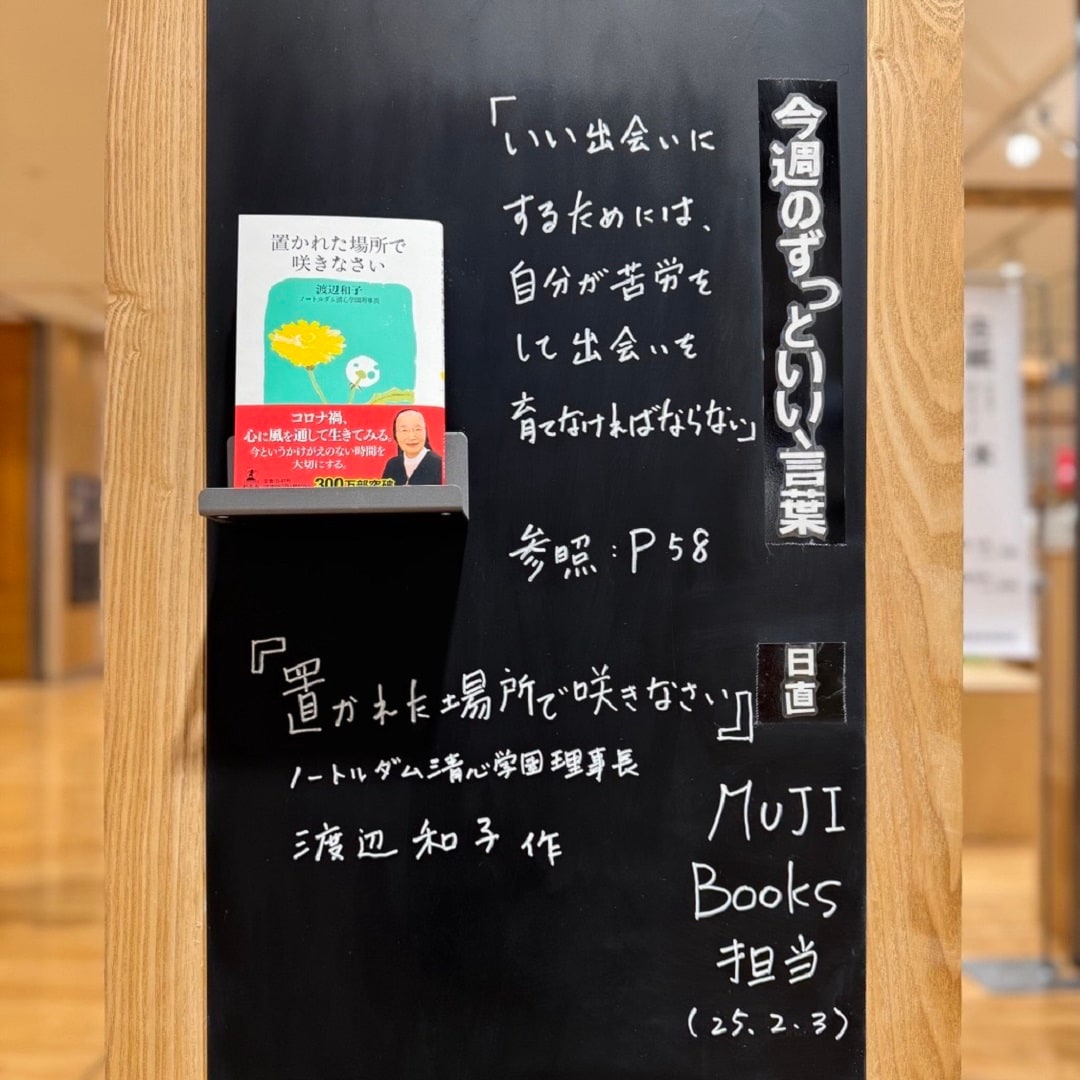 今週のずっといい、言葉
「いい出会いに
するためには、
自分が苦労を
して出会いを
育てなければならない」
参照：P58
置かれた場所で
咲きなさい
渡辺和子
ノートルダム清心学園理事長
コロナ禍、
心に風を通して生きてみる。
今というかけがえのない時間を
大切にする。
300万部突破
『置かれた場所で咲きなさい』
ノートルダム清心学園理事長
渡辺和子 作
日直
MUJI
Books
担当
(25.2.3)